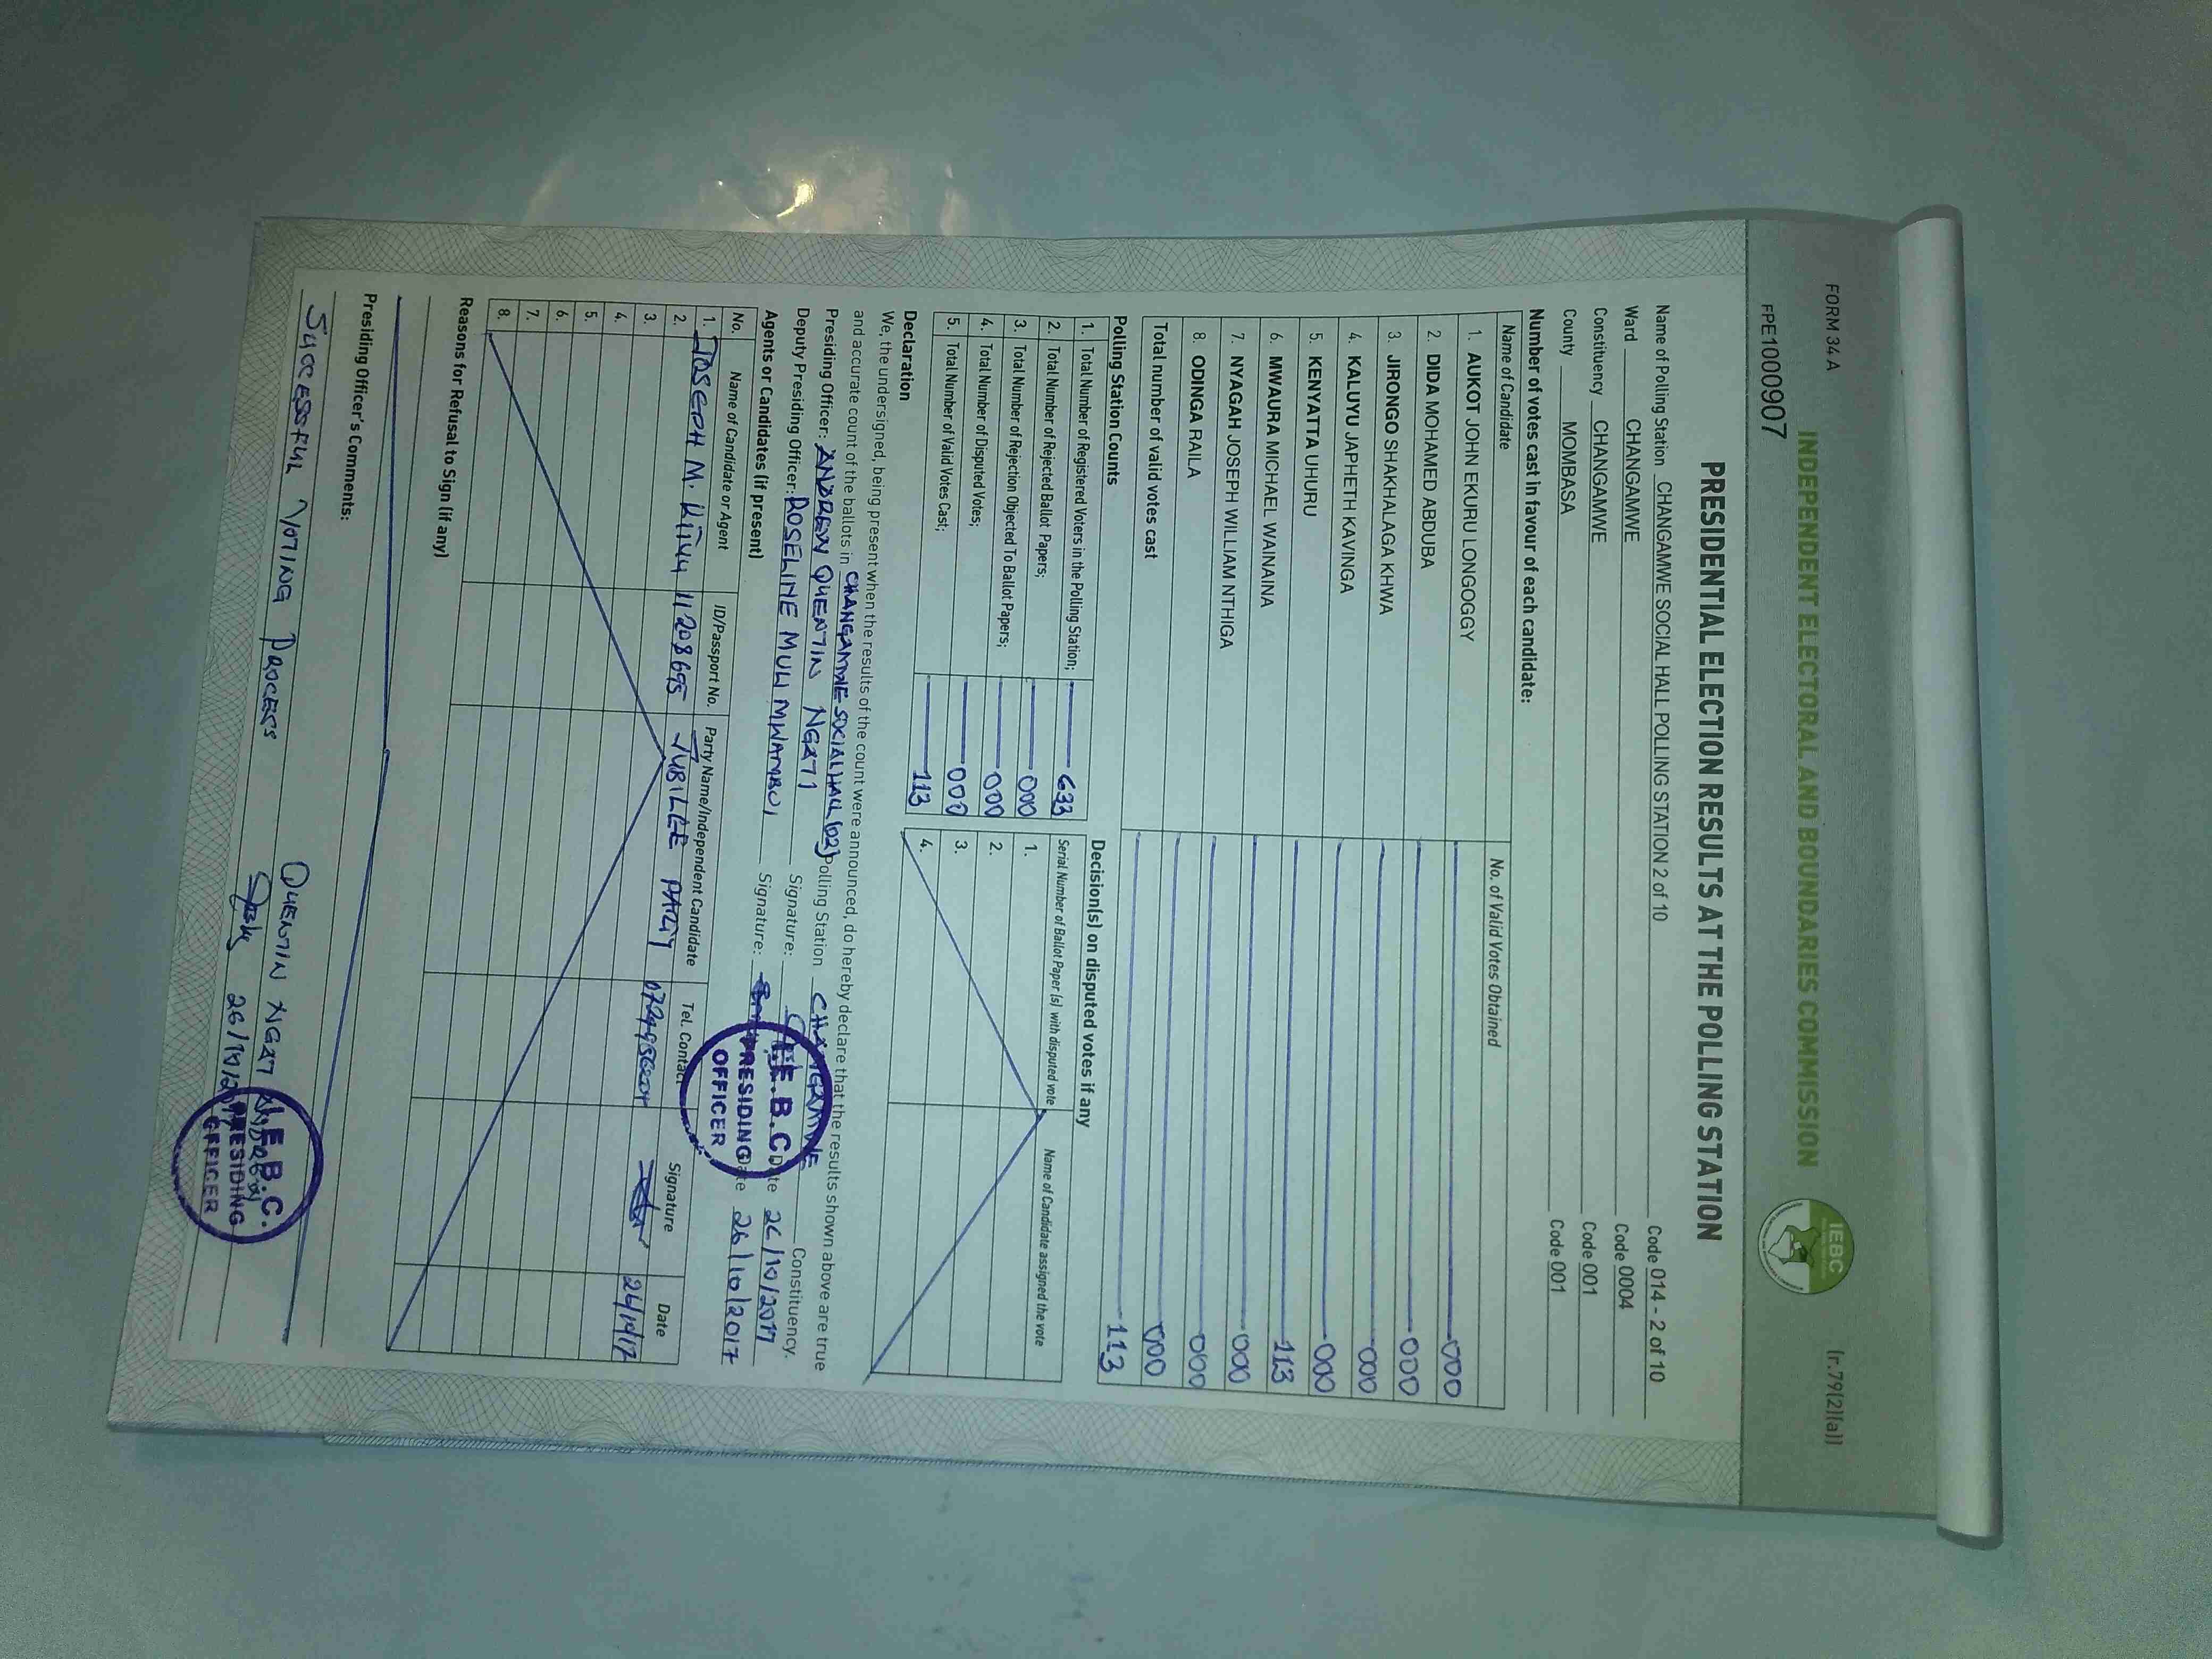 FORM 34 A
(r.79(2)(a))
INDEPENDENT ELECTORAL AND BOUNDARIES COMMISSION
IEBC
FPE1000907
PRESIDENTIAL ELECTION RESULTS AT THE POLLING STATION
Name of Polling Station CHANGAMWE SOCIAL HALL POLLING STATION 2 of 10 Code 014 - 2 of 10
Ward CHANGAMWE Code 0004
Constituency CHANGAMWE Code 001
County MOMBASA Code 001
Number of votes cast in favour of each candidate:
Name of Candidate No. of Valid Votes Obtained
1. AUKOT JOHN EKURU LONGOGGY 000
2. DIDA MOHAMED ABDUBA 000
3. JIRONGO SHAKHALAGA KHWA 000
4. KALUYU JAPHETH KAVINGA 000
5. KENYATTA UHURU 113
6. MWAURA MICHAEL WAINAINA 000
7. NYAGAH JOSEPH WILLIAM NTHIGA 000
8. ODINGA RAILA 000
Total number of valid votes cast 113
Polling Station Counts
1. Total Number of Registered Voters in the Polling Station; 633
2. Total Number of Rejected Ballot Papers; 000
3. Total Number of Rejection Objected To Ballot Papers; 000
4. Total Number of Disputed Votes; 000
5. Total Number of Valid Votes Cast; 113
Decision(s) on disputed votes if any
Serial Number of Ballot Paper (s) with disputed vote Name of Candidate assigned the vote
1.
2.
3.
4.
Declaration
We, the undersigned, being present when the results of the count were announced, do hereby declare that the results shown above are true
and accurate count of the ballots in CHANGAMWE SOCIAL HALL (02) Polling Station CHANGAMWE Constituency.
Presiding Officer: ANDREW QUENTIN NGATI Signature: Date 26/10/2017
Deputy Presiding Officer: ROSELINE MULI MWAMBUI Signature: Date 26/10/2017
I.E.B.C.
PRESIDING
OFFICER
Agents or Candidates (if present)
No. Name of Candidate or Agent ID/Passport No. Party Name/Independent Candidate Tel. Contact Signature Date
1. JOSEPH M. KIVU 11208695 JUBILEE PARTY 26/10/17
2.
3.
4.
5.
6.
7.
8.
Reasons for Refusal to Sign (if any)
Presiding Officer's Comments:
SUCCESSFUL VOTING PROCESS QUENTIN NGATI
26/10/2017
I.E.B.C.
PRESIDING
OFFICER